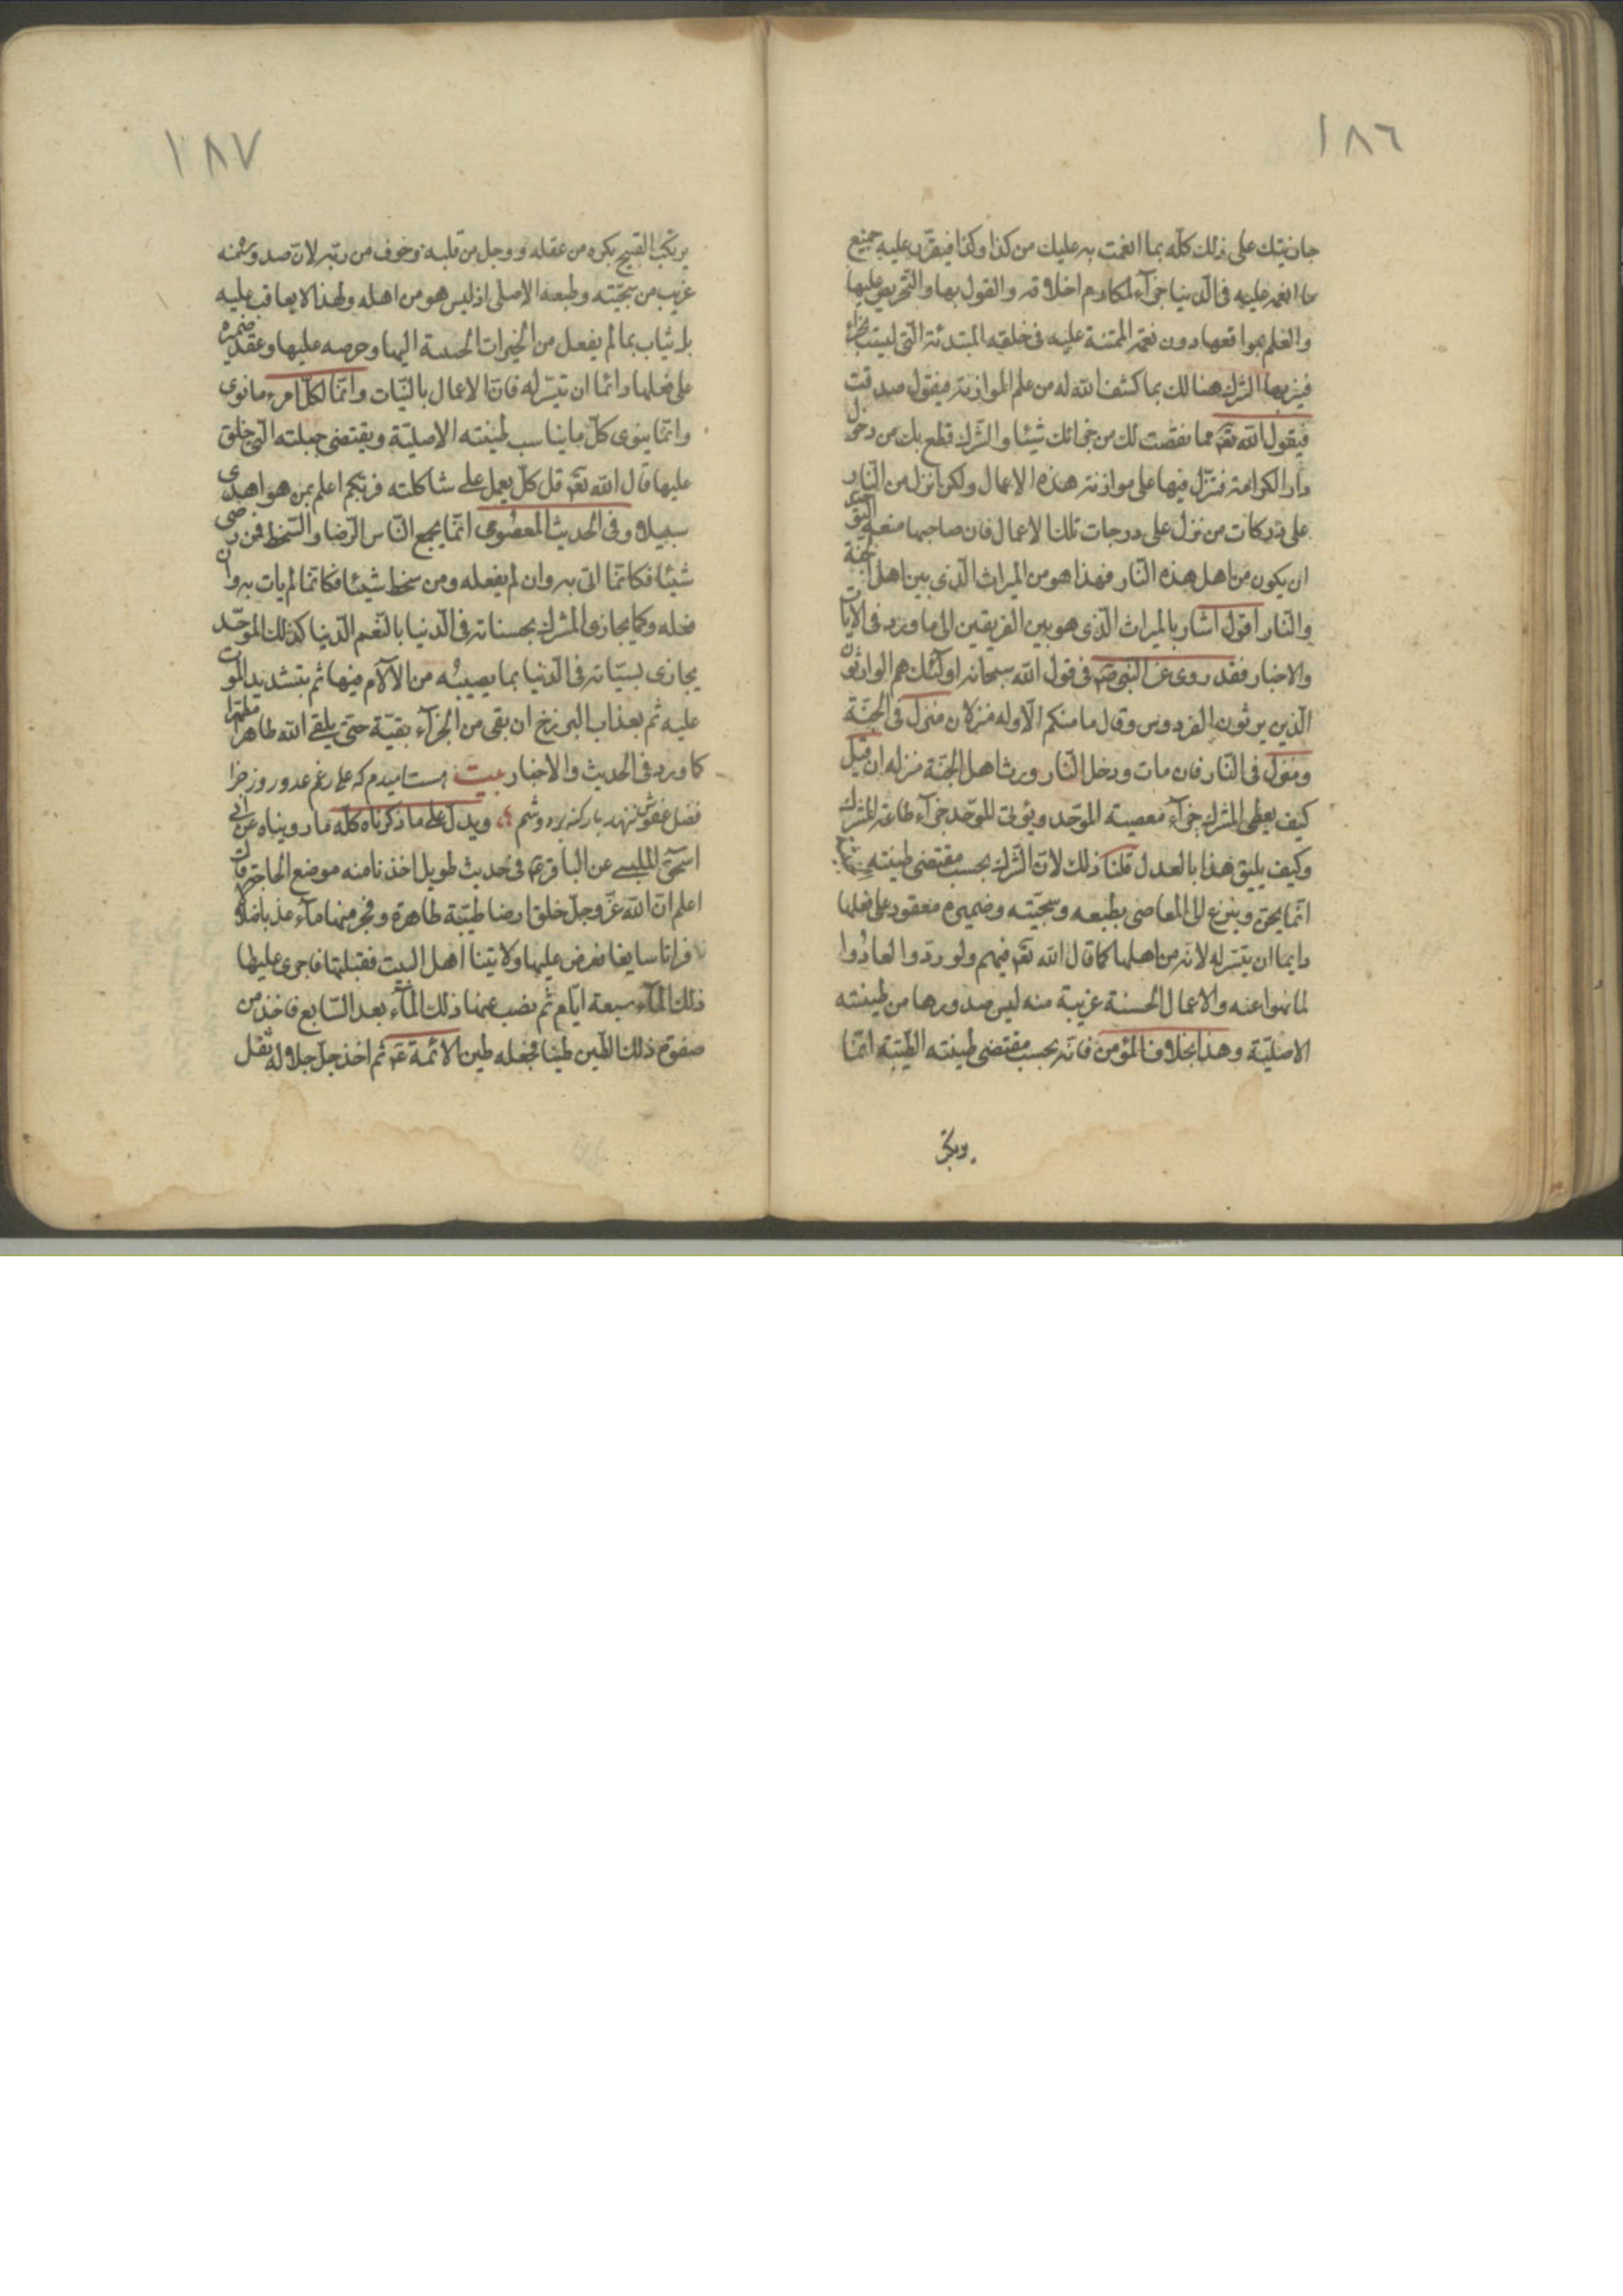 ١٨٦
جازيتك على ذلك كله بما انعمت به عليك من كذا وكذا فيقرر عليه جميع
ما انعم عليه فى الدنيا جزآء لمكارم اخلاقه والقول بها والتحريص عليها
والعلم بمواقعها دون نعمه الممتنة عليه فى خلقه المبتدئة التى ليست بجزاء
فيزيها المشرك هنالك بما كشف الله له من علم الموازنة فيقول صدقت
فيقول الله تعه فما نقصت لك من جزائك شيئا والشرك قطع بك من دخول
دار الكرامة فتنزل فيها على موازنة هذه الاعمال ولكن انزل من النار
على دركات من نزل على درجات تلك الاعمال فان صاحبها منعه التوحيد
ان يكون من اهل هذه النار فهذا هو من الميراث الذى بين اهل الجنة
والنار اقول اشار بالميراث الذى هو بين الفريقين الى ما ورد فى الآيات
والاخبار فقد روى عن النبى صم فى قول الله سبحانه اولئك هم الوارثون
الذين يرثون الفردوس وقال ما منكم الا وله منزلان منزل فى الجنة
ومنزل فى النار فان مات ودخل النار ورث اهل الجنة منزله ان قيل
كيف يعطى المشرك جزآء معصية الموحد ويؤتى للموحد جزآء طاعة المشرك
وكيف يليق هذا بالعدل قلنا ذلك لان المشرك بحسب مقتضى طينته
انما يحن وينزع الى المعاصى بطبعه وسجيته وضميره معقود على فعلها
دايما ان تيسر له لانه من اهلها كما قال الله تعه فيهم ولو ردوا لعادوا
لما نهوا عنه والاعمال الحسنة غريبة منه ليس صدورها من طينته
الاصلية وهذا بخلاف المؤمن فانه بحسب مقتضى طينته الطيبة انما
يرتكب
١٨٧
يرتكب القبيح بكره من عقله ووجل من قلبه وخوف من ربه لان صدوره منه
غريب من سجيته وطبعه الاصلى اذ ليس هو من اهله ولهذا لا يعاقب عليه
بل يثاب بما لم يفعل من الخيرات الحسنة اليها وحرصه عليها وعقد ضميره
على فعلها دائما ان تيسر له فان الاعمال بالنيات وانما لكل امرء ما نوى
وانما ينوى كل ما يناسب طينته الاصلية ويقتضى جبلته التى خلق
عليها قال الله تعه قل كل يعمل على شاكلته فربكم اعلم بمن هو اهدى
سبيلا وفى الحديث المعصومى انما يجمع الناس الرضا والسخط فمن رضى
شيئا فكانما اتى به وان لم يفعله ومن سخط شيئا فكانما لم يات به وان
فعله وكما يجازى المشرك بحسناته فى الدنيا بالنعم الدنيا كذلك الموحد
يجازى بسيئاته فى الدنيا بما يصيبه من الآلام فيها ثم بتشديد الموت
عليه ثم بعذاب البرزخ ان بقى من الجزآء بقية حتى يلقى الله طاهرا مطهرا
كما ورد فى الحديث والاخبار بيت هست اميدم كه على رغم عدو روز جزا
فضل عفوش ننهد بار كنه بر دوشم ويدل على ما ذكرناه كله ما رويناه عن ابى
اسحق الليثى عن الباقر عم فى حديث طويل اخذنا منه موضع الحاجة قال
اعلم ان الله عز وجل خلق ارضا طيبة طاهرة وفجر منها مآء عذبا زلالا
فراتا سايغا فعرض عليها ولايتنا اهل البيت فقبلتها فاجرى عليها
ذلك المآء سبعة ايام ثم نضب عنها ذلك المآء بعد السابع فاخذ من
صفوة ذلك الطين طينا فجعله طين الائمة عم ثم اخذ جل جلاله ثفل